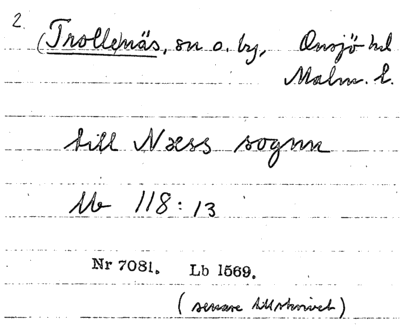 2.
(Trollenäs, sn o. by, Onsjö hd
Malm. l.
till Næss sognn
Mb 118:13
Nr 7081. Lb 1569.
(senare tillskrivet)